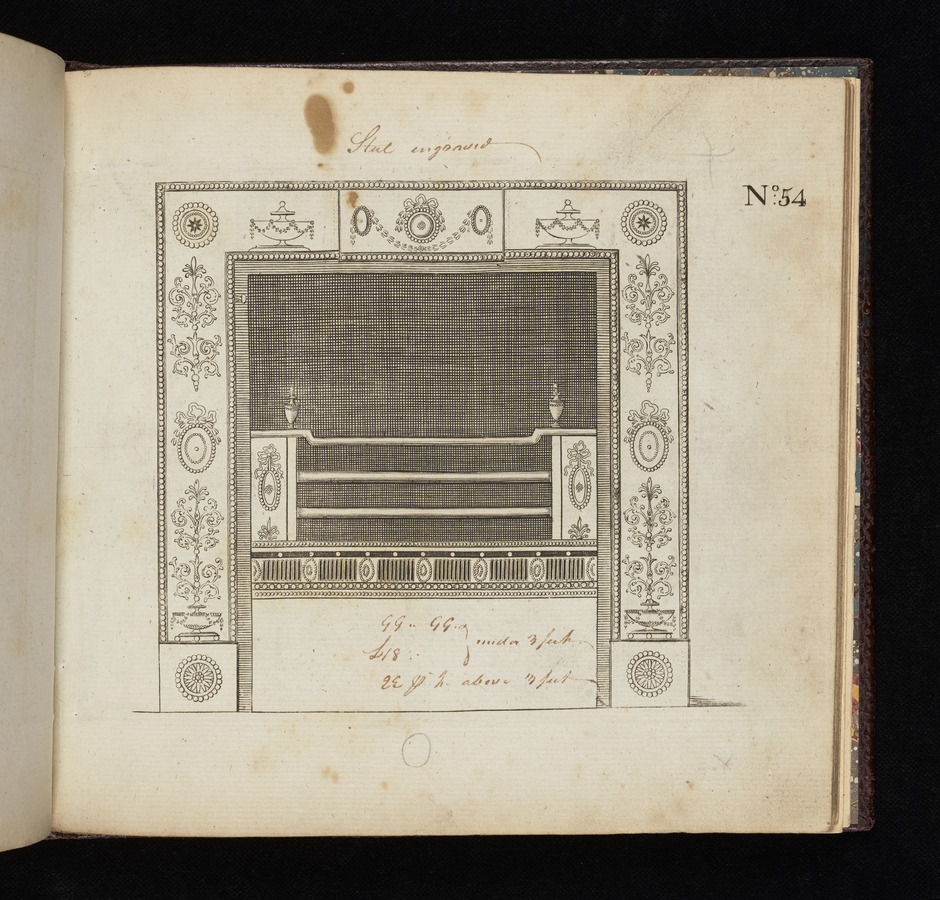 Steel engraved
Nº. 54
GG.. GG..
£18 .
under 3 feet
above 3 feet